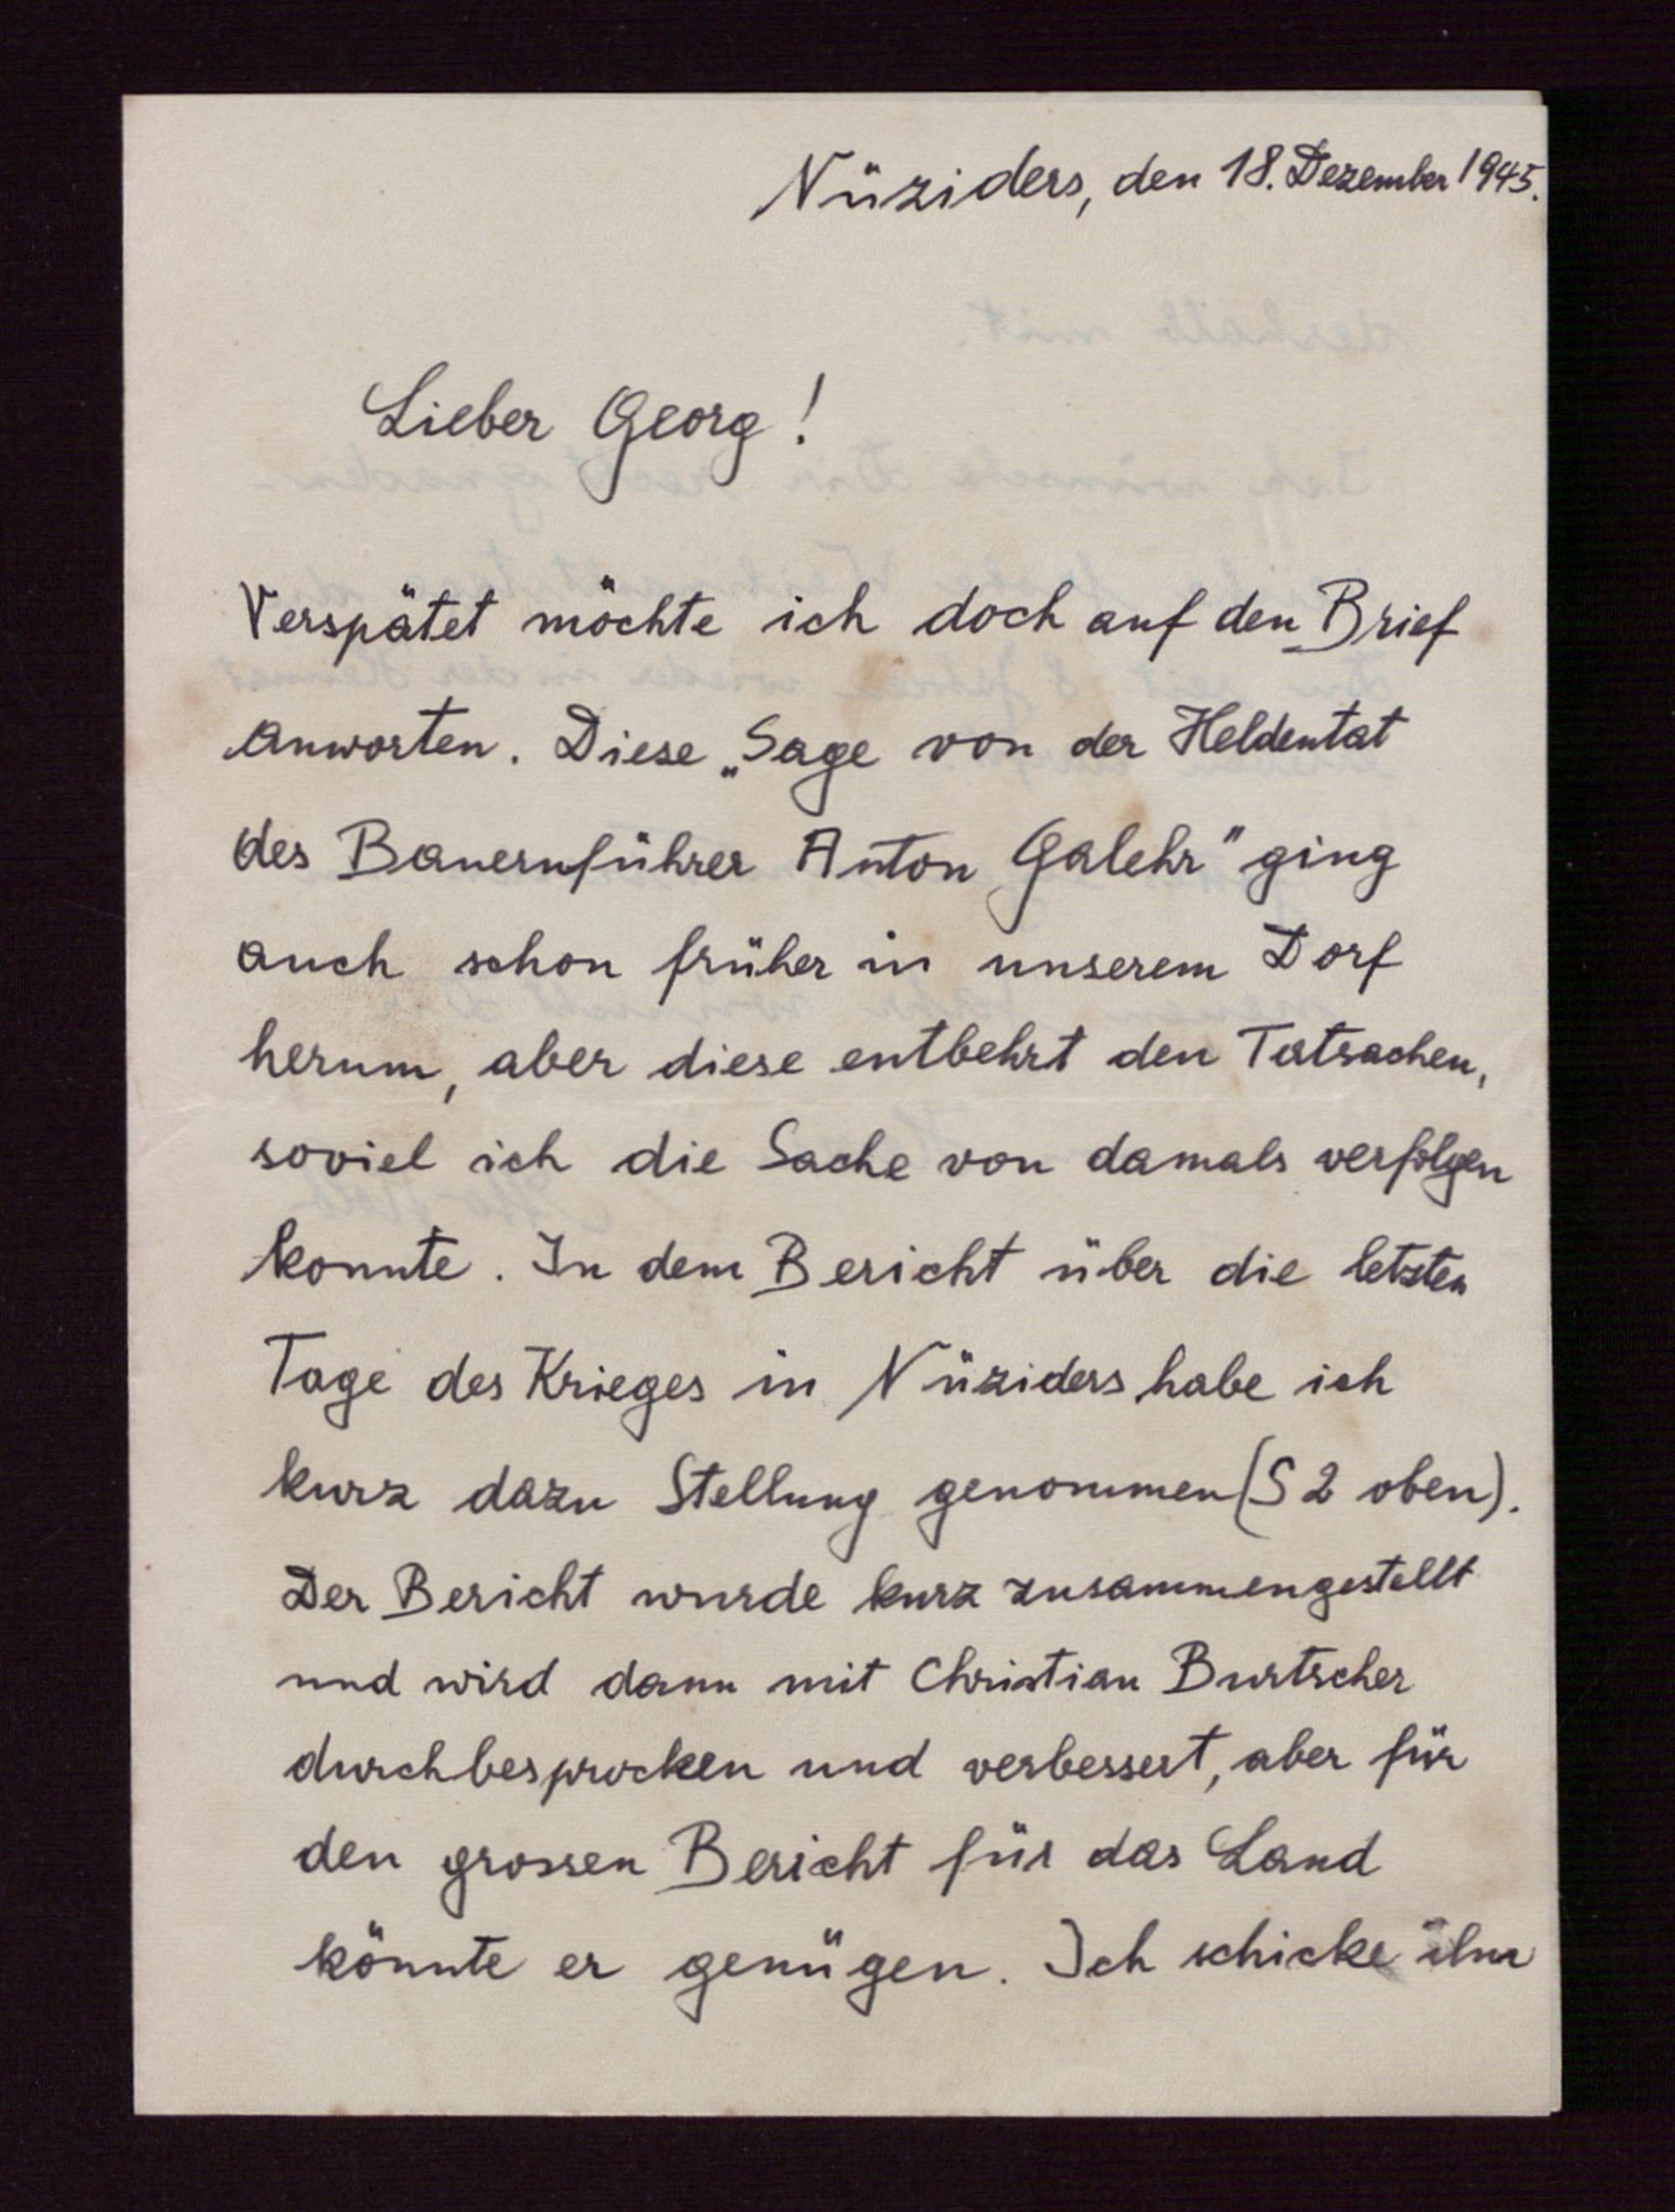 Nüziders, den 18. Dezember 1945.
Lieber Georg!
Verspätet möchte ich doch auf den Brief
anworten. Diese „Sage von der Heldentat
des Bauernführer Anton Galehr" ging
auch schon früher in unserem Dorf
herum, aber diese entbehrt den Tatsachen,
soviel ich die Sache von damals verfolgen
konnte. In dem Bericht über die letzten
Tage des Krieges in Nüziders habe ich
kurz dazu Stellung genommen (S 2 oben).
Der Bericht wurde kurz zusammengestellt
und wird dann mit Christian Burtscher
durchbesprochen und verbessert, aber für
den grossen Bericht für das Land
könnte er genügen. Ich schicke ihn